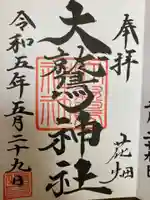 奉拝
花畑
大鷲神社
令和五年五月二十九日